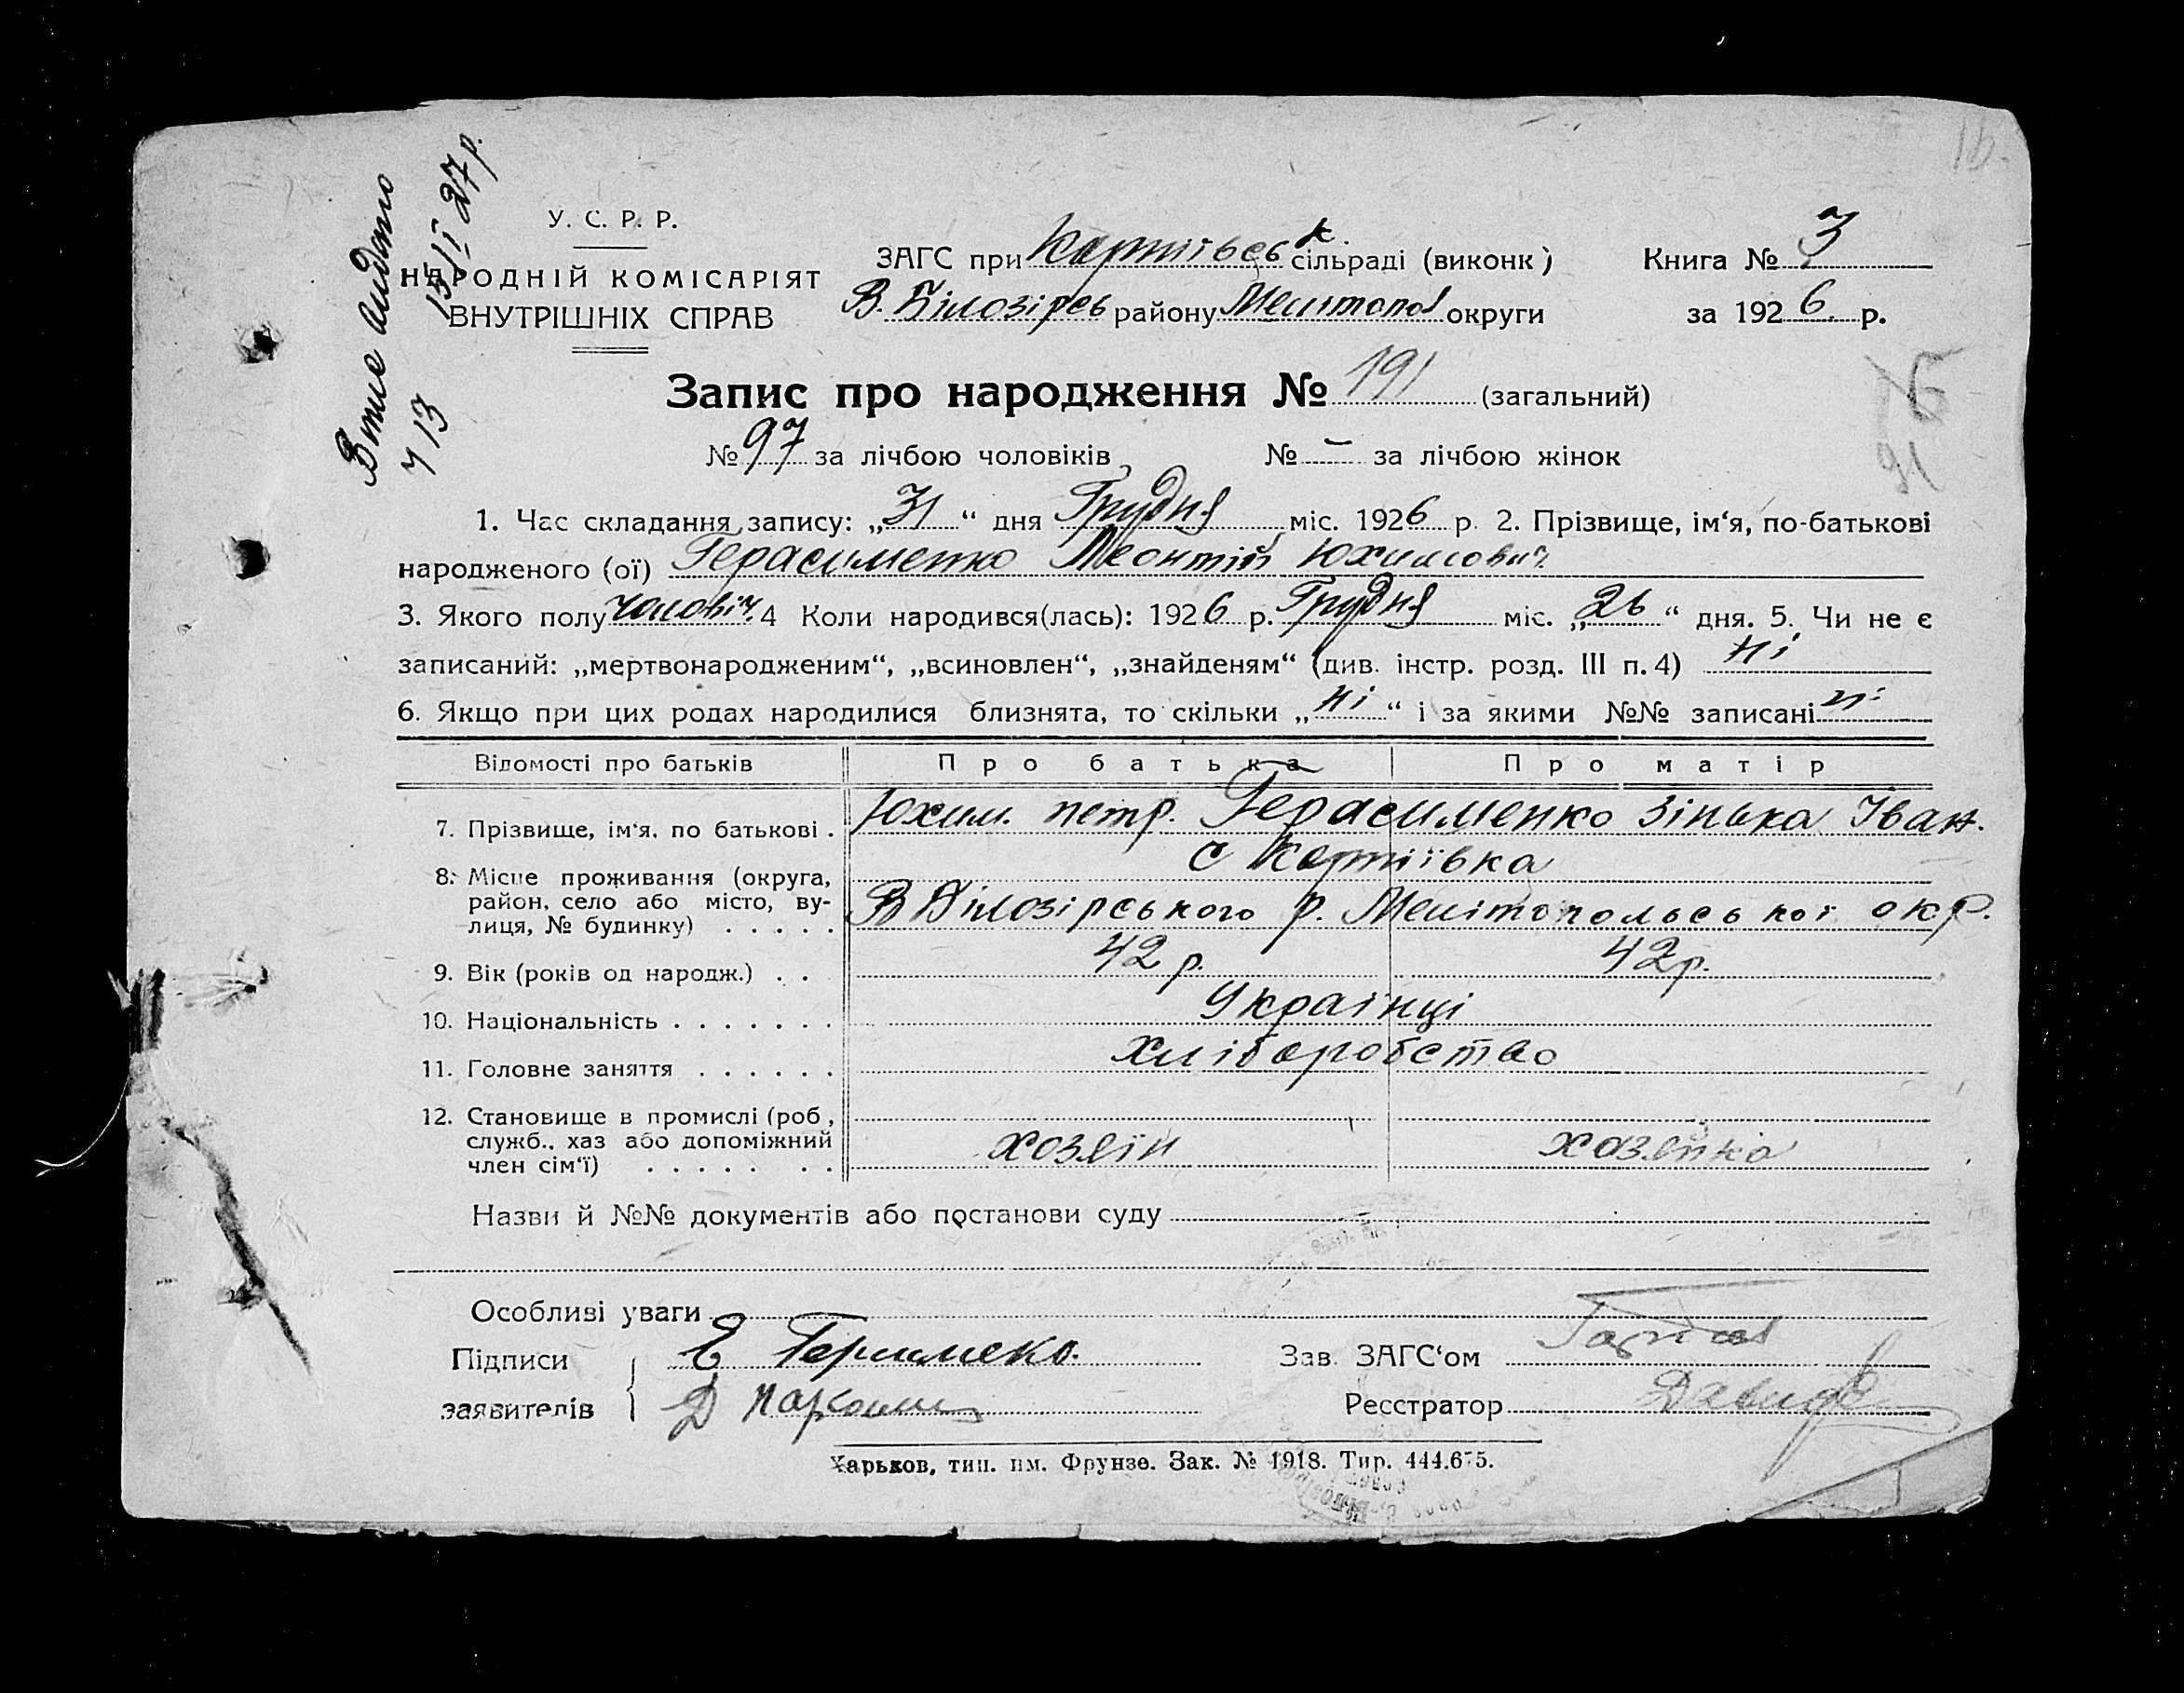 Витяг видано
15/II 27 р.
713
У. С. Р. Р.
НАРОДНІЙ КОМІСАРІЯТ
ВНУТРІШНІХ СПРАВ
ЗАГС при Картіївськ. сільраді (виконк)
В. Білозірсь району Мелітопол округи
Книга № 3
за 1926. р.
Запис про народження № 191 (загальний)
№ 97 за лічбою чоловіків № – за лічбою жінок
1. Час складання запису: „31“ дня Грудня міс. 1926 р. 2. Прізвище, ім‘я, по-батькові
народженого (ої) Герасименко Леонтій Юхимович
3. Якого полу чоловіч. 4 Коли народився(лась): 1926 р. Грудня міс. „26“ дня. 5. Чи не є
записаний: „мертвонародженим“, „всиновлен“, „знайденям“ (див. інстр. розд. III п. 4) ні
6. Якщо при цих родах народилися близнята, то скільки „ні“ і за якими №№ записані ні
Відомості про батьків Про батька Про матір
7. Прізвище, ім‘я, по батькові . Юхим. петр. Герасименко Зінька Іван.
8. Місце проживання (округа, район, село або місто, вулиця, № будинку) . . . . . с Картіївка
В Білозірського р. Мелітопольської окр.
9. Вік (років од народж.) . . 42 р. 42 р.
10. Національність . . . . . . . Українці
11. Головне заняття . . . . . . хліборобство
12. Становище в промислі (роб, служб., хаз або допоміжний член сім‘ї) . . . . . . . хозяїн хозяйка
Назви й №№ документів або постанови суду
Особливі уваги
Підписи Е Геримеко. Зав. ЗАГС‘ом
заявителів Д Реєстратор
Харьков, тип. им. Фрунзе. Зак. № 1918. Тир. 444.675.